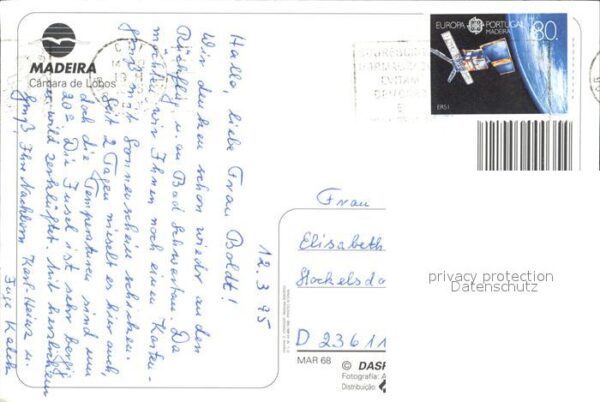 MADEIRA
Câmara de Lobos
EUROPA CEPT PORTUGAL
MADEIRA
80.
ERS1
12.3.95
Hallo, liebe Frau Boldt!
Wir denken schon wieder an den
Rückflug u. an Bad Schwartau. Da
möchten wir Ihnen noch einen Karten-
gruß mit Sonnenschein schicken.
Seit 2 Tagen nieselt es hier auch,
doch die Temperaturen sind um
20°. Die Insel ist sehr bergig
u. wild zerklüftet. Mit herzlichem
Gruß Ihre Nachbarn Karl-Heinz u.
Inge
Frau
Elisabeth
Stockelsdo
D 23611
privacy protection
Datenschutz
MAR 68
© DASP
Fotografia: A
Distribuição: